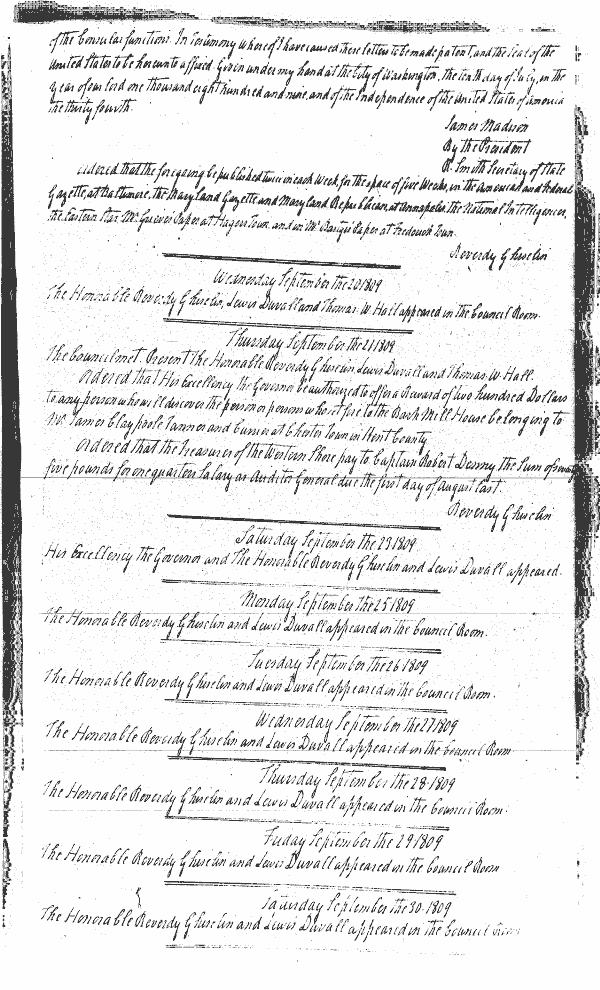 of the Consular functions. In Testimony whereof I have caused these letters to be made patent, and the Seal of the
United States to be hereunto affixed. Given under my hand at the City of Washington, the tenth day of July, in the
Year of our Lord one thousand eight hundred and nine, and of the Independence of the United States of America
the thirty fourth.
James Madison
By the President
R. Smith Secretary of State
Ordered that the foregoing be published twice in each Week, for the space of five Weeks, in the American and Federal
Gazette, at Baltimore, the Maryland Gazette and Maryland Republican, at Annapolis, the National Intelligencer,
the Eastern Star, Mr. Grieves Paper at Hagers Town, and in Mr. Paper at Frederick Town.
Reverdy Ghiselin
Wednesday September the 20 1809
The Honorable Reverdy Ghiselin, Lewis Duvall and Thomas W Hall appeared in the Council Room.
Thursday September the 21 1809
The Council met. Present The Honorable Reverdy Ghiselin Lewis Duvall and Thomas W. Hall.
Ordered that His Excellency the Governor be authorized to offer a Reward of two hundred Dollars
to any person who will discover the person or persons who set fire to the Bark Mill House belonging to
Mr. James Claypole Tanner and Currier at Chester Town in Kent County
Ordered that the Treasurer of the Western Shore pay to Captain Robert Denny the Sum of
five pounds for one quarters Salary as Auditor General due the first day of August last.
Reverdy Ghiselin
Saturday September the 23 1809
His Excellency the Governor and The Honorable Reverdy Ghiselin and Lewis Duvall appeared.
Monday September the 25 1809
The Honorable Reverdy Ghiselin and Lewis Duvall appeared in the Council Room.
Tuesday September the 26 1809
The Honorable Reverdy Ghiselin and Lewis Duvall appeared in the Council Room.
Wednesday September the 27 1809
The Honorable Reverdy Ghiselin and Lewis Duvall appeared in the Council Room
Thursday September the 28-1809
The Honorable Reverdy Ghiselin and Lewis Duvall appeared in the Council Room.
Friday September the 29 1809
The Honorable Reverdy Ghiselin and Lewis Duvall appeared in the Council Room
Saturday September the 30-1809
The Honorable Reverdy Ghiselin and Lewis Duvall appeared in the Council Room